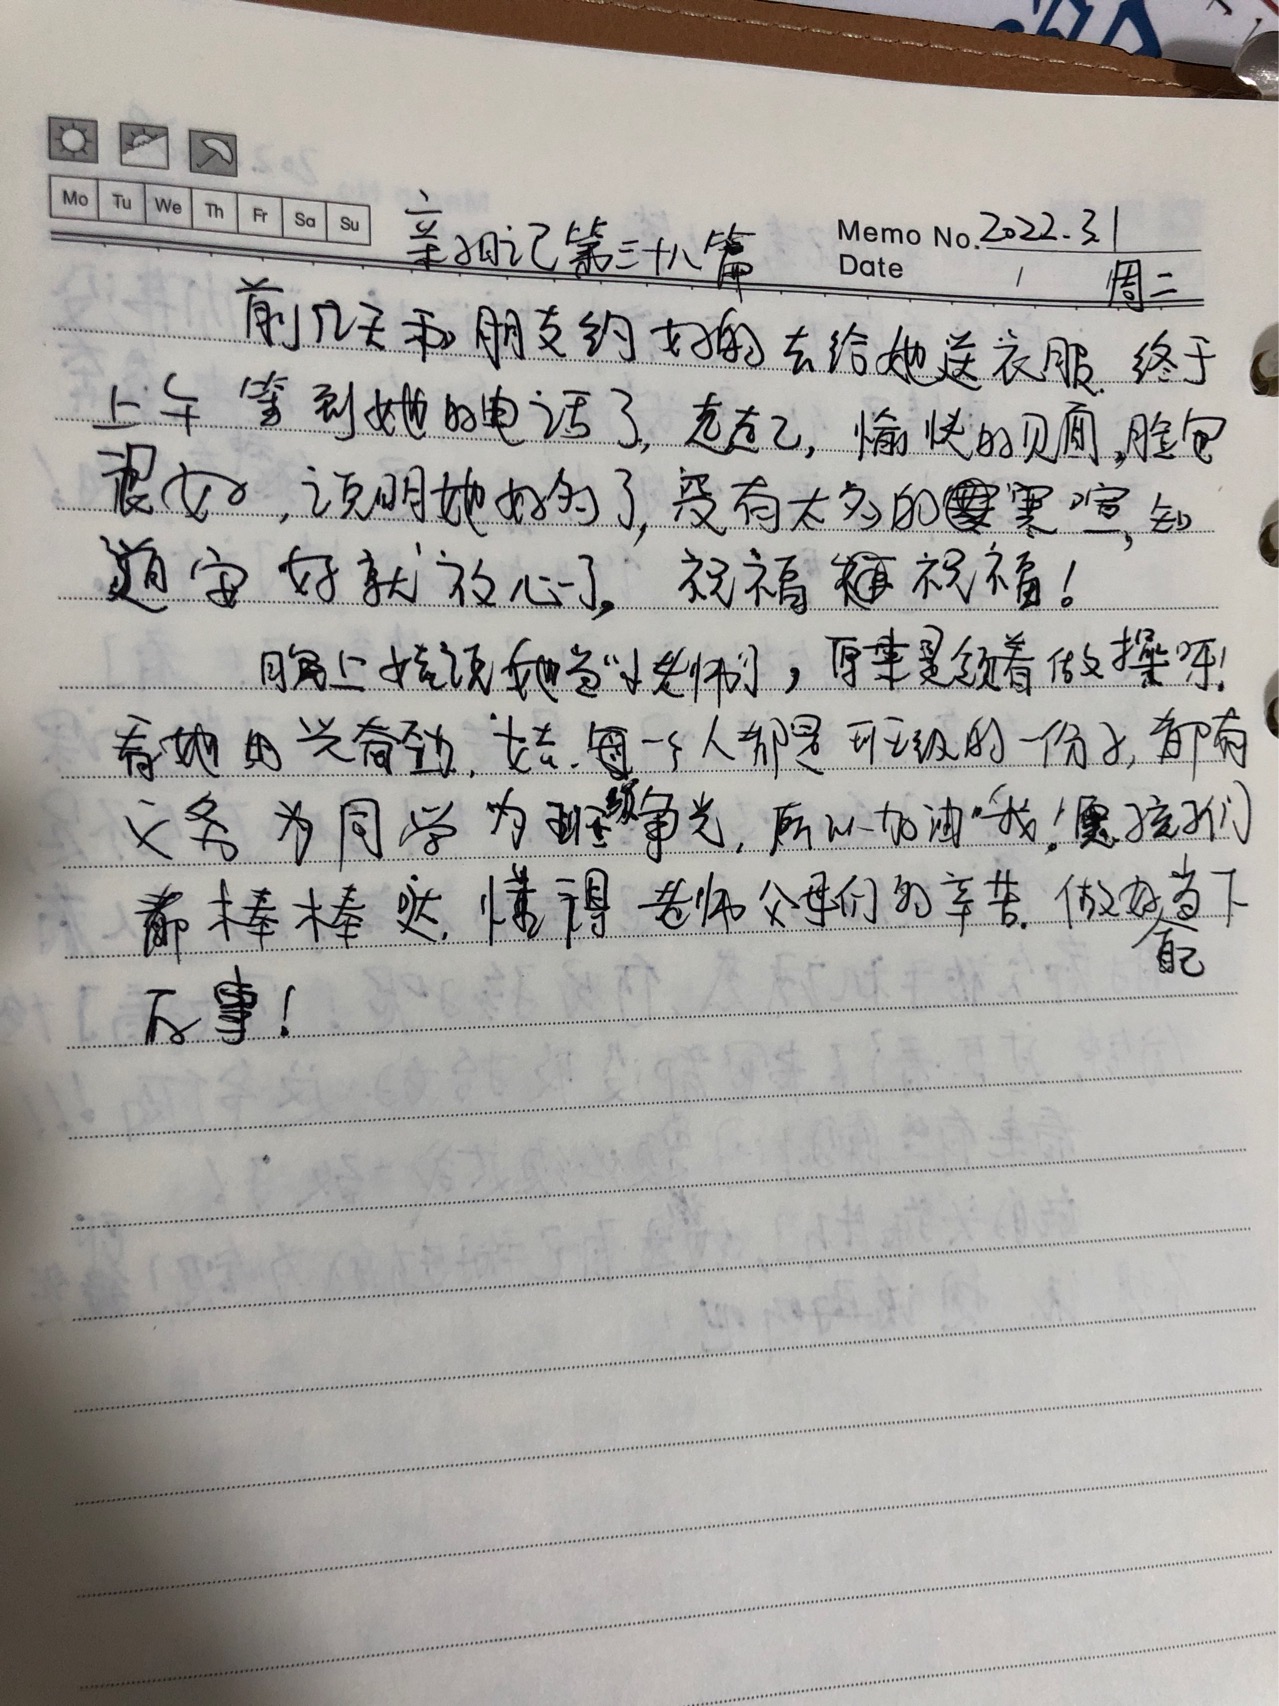 Mo Tu We Th Fr Sa Su
亲子日记第三十八篇
Memo No. 2022.3.1
Date / 周二
前几天和朋友约好的去给她送衣服.终于
上午等到她的电话了,走起,愉快的见面,脸色
很好,说明她好的了,没有太多的寒喧,知
道安好就放心了。祝福祝福!
晚上娃说她当"小老师",原来是领着做操呀!
看她的兴奋劲,娃.每一个人都是班级的一份子,都有
义务为同学为班级争光,所以加油哦!愿孩子们
都棒棒哒.懂得老师父母们的辛苦.做好当下
自己
的事!